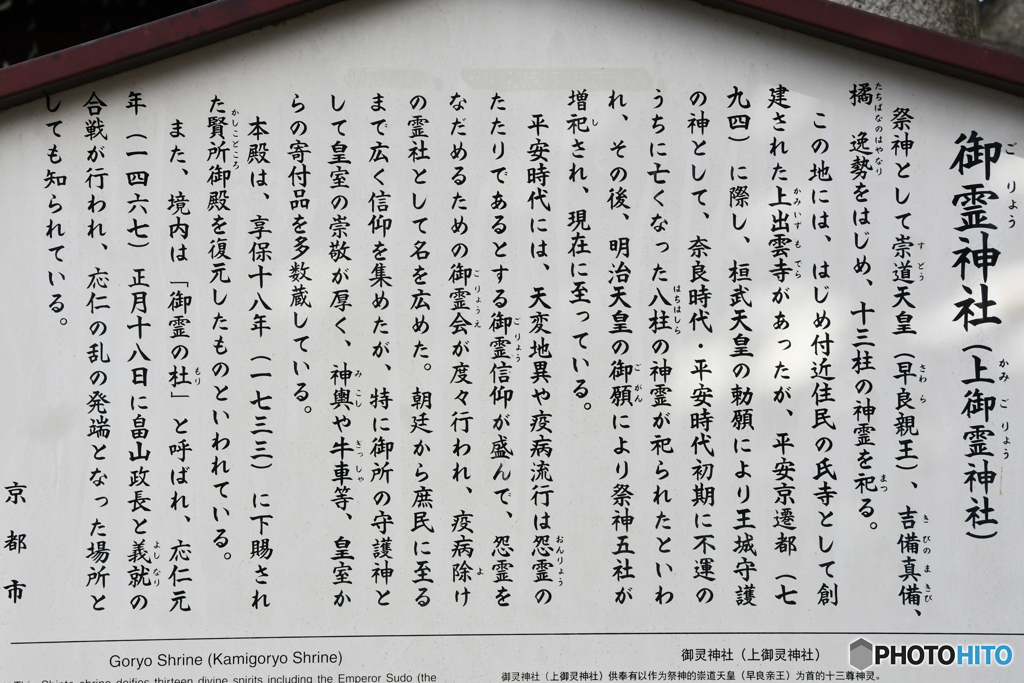 御霊神社（上御霊神社）
祭神として崇道天皇（早良親王）、吉備真備、
橘　逸勢をはじめ、十三柱の神霊を祀る。
この地には、はじめ付近住民の氏寺として創
建された上出雲寺があったが、平安京遷都（七
九四）に際し、桓武天皇の勅願により王城守護
の神として、奈良時代・平安時代初期に不運の
うちに亡くなった八柱の神霊が祀られたといわ
れ、その後、明治天皇の御願により祭神五社が
増祀され、現在に至っている。
平安時代には、天変地異や疫病流行は怨霊の
たたりであるとする御霊信仰が盛んで、怨霊を
なだめるための御霊会が度々行われ、疫病除け
の霊社として名を広めた。朝廷から庶民に至る
まで広く信仰を集めたが、特に御所の守護神と
して皇室の崇敬が厚く、神輿や牛車等、皇室か
らの寄付品を多数蔵している。
本殿は、享保十八年（一七三三）に下賜され
た賢所御殿を復元したものといわれている。
また、境内は「御霊の杜」と呼ばれ、応仁元
年（一四六七）正月十八日に畠山政長と義就の
合戦が行われ、応仁の乱の発端となった場所と
しても知られている。
京都市
Goryo Shrine (Kamigoryo Shrine)
This Shinto shrine deifies thirteen divine spirits including the Emperor Sudo (the
御灵神社（上御灵神社）
御灵神社（上御灵神社）供奉有以作为祭神的崇道天皇（早良亲王）为首的十三尊神灵。
PHOTOHITO